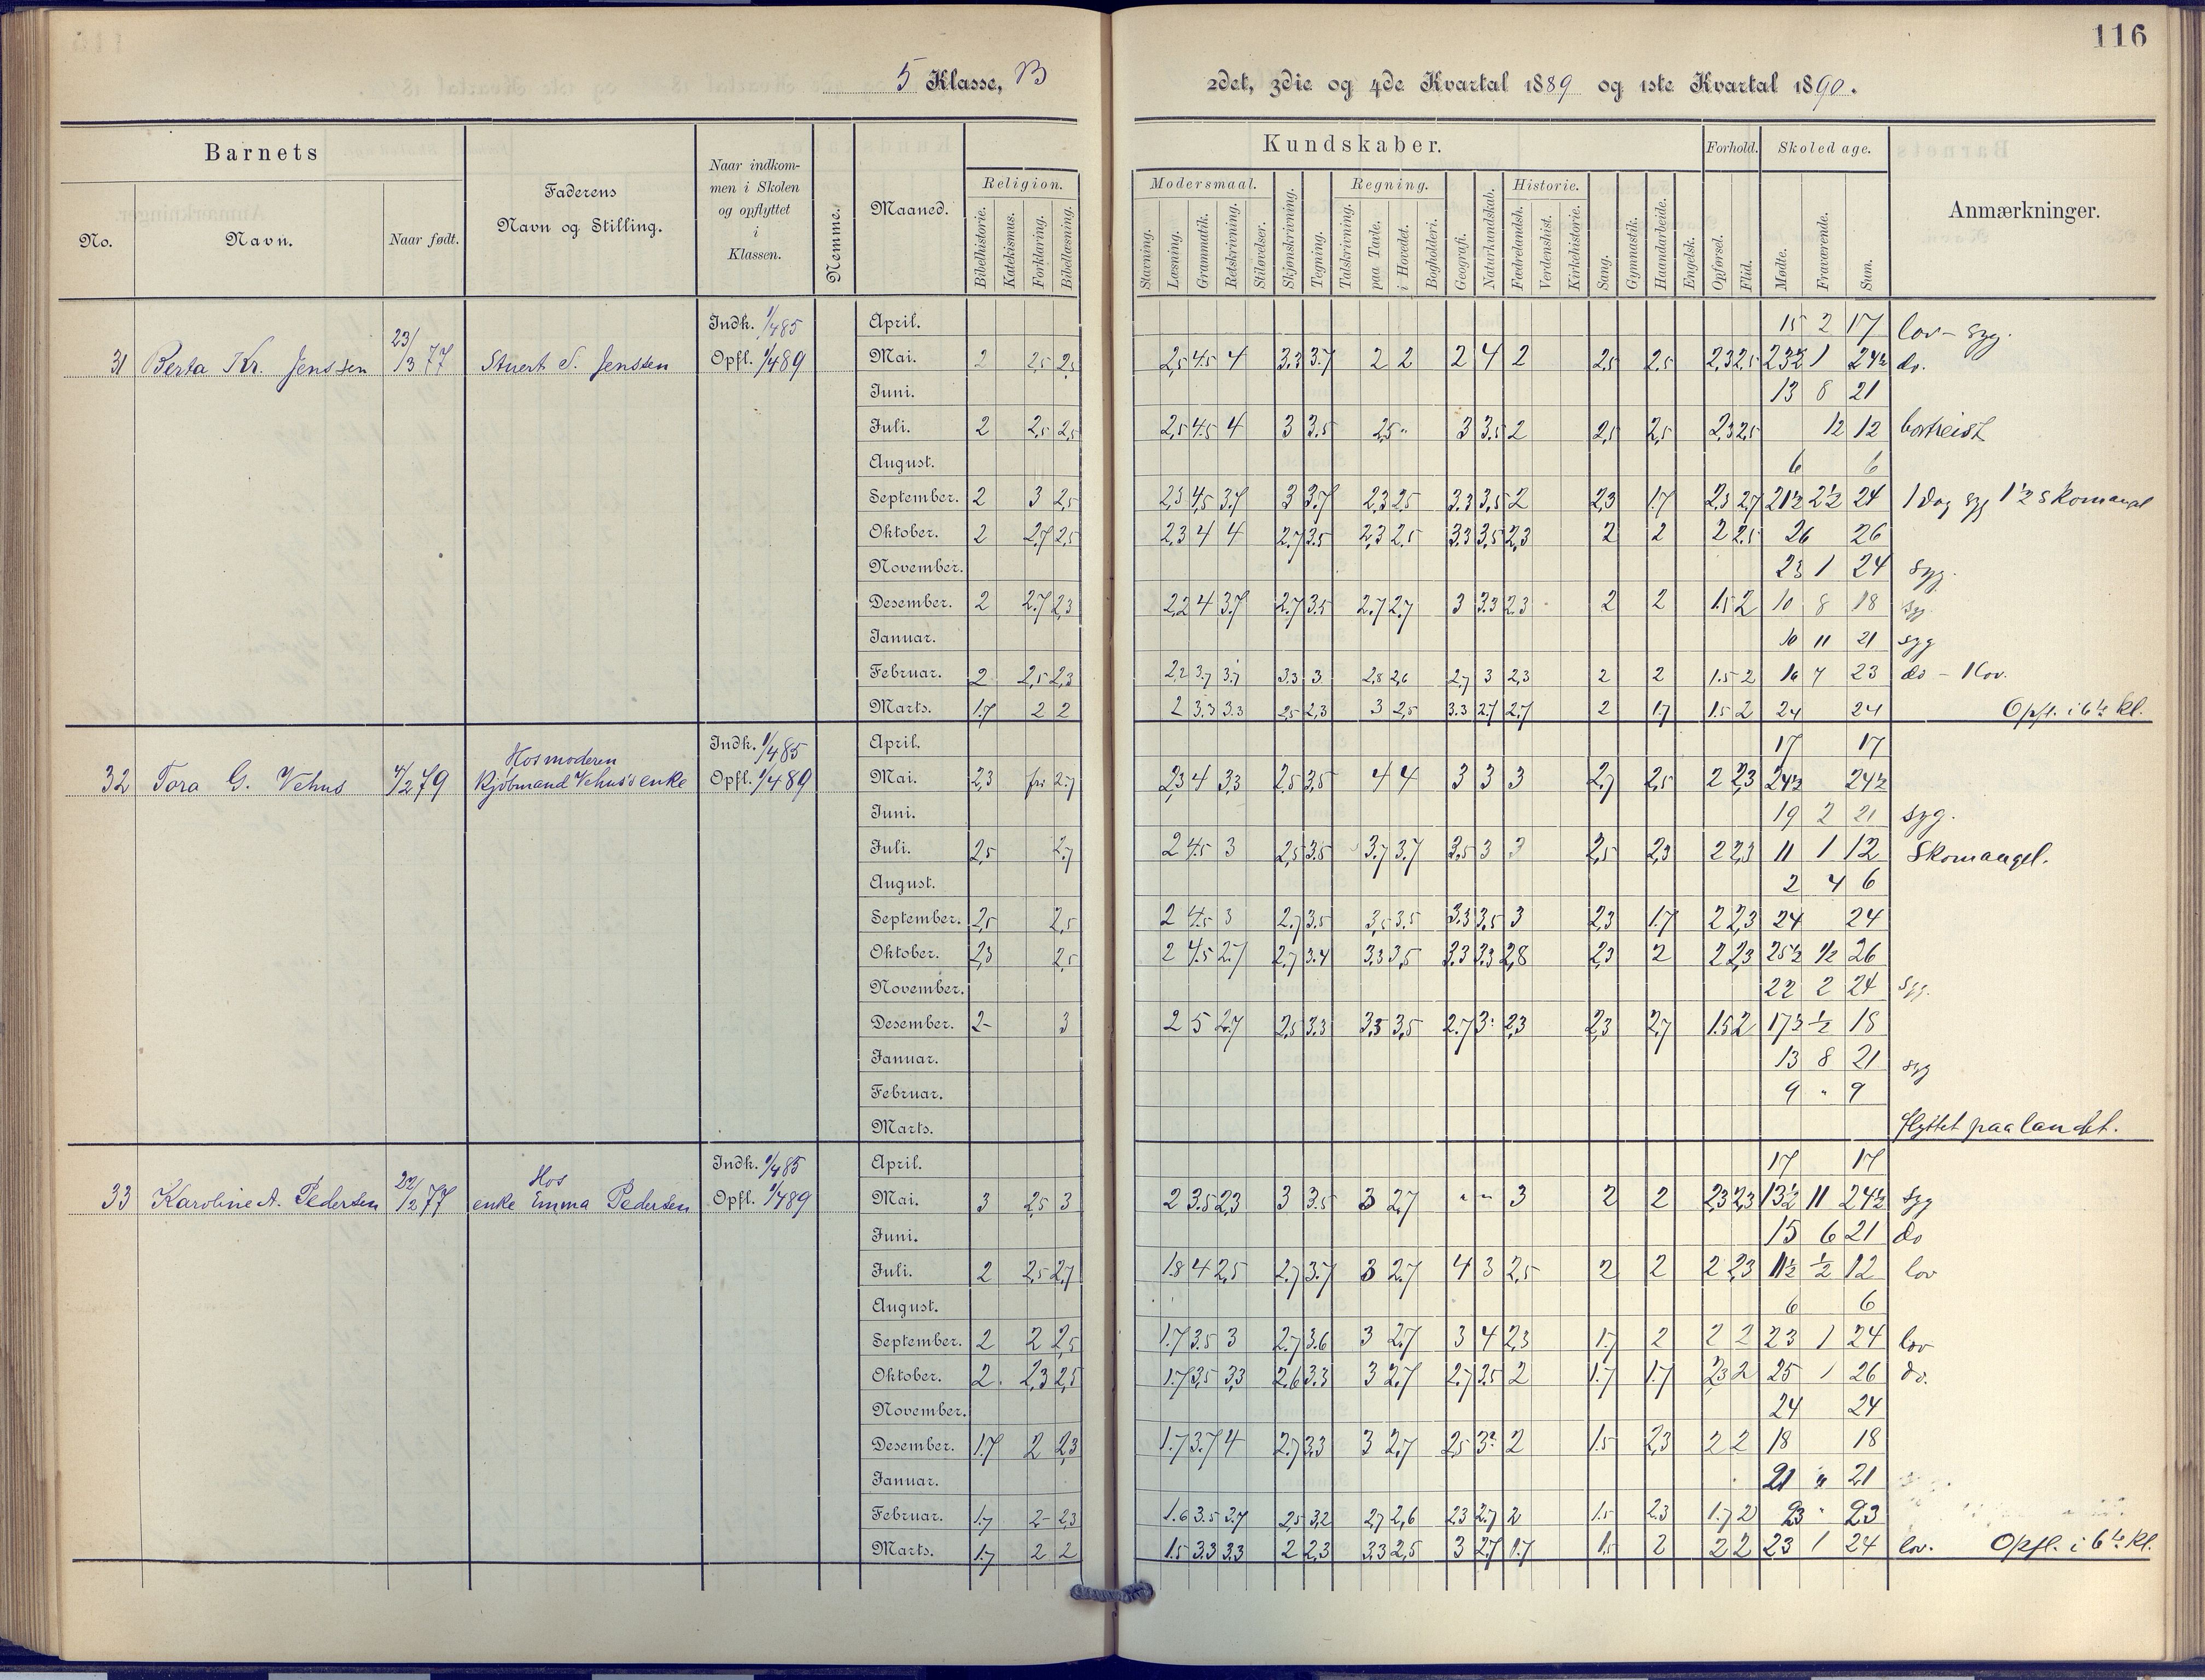 116
5 Klasse, B
2det, 3die og 4de Kvartal 1889 og 1ste Kvartal 1890.
Barnets
No.
Navn.
Naar født.
Faderens
Navn og Stilling.
Naar indkom-
men i Skolen
og opflyttet
i
Klassen.
Nemme.
Maaned.
Kundskaber.
Religion.
Bibelhistorie. Katekismus. Forklaring. Bibellæsning.
Modersmaal.
Stavning. Læsning. Grammatik. Retskrivning. Stiløvelser.
Skjønskrivning. Tegning.
Regning.
Talskrivning. paa Tavle. i Hovedet. Bogholderi.
Geografi. Naturkundskab.
Historie.
Fædrelandsh. Verdenshist. Kirkehistorie.
Sang. Gymnastik. Haandarbeide. Engelsk.
Forhold.
Opførsel. Flid.
Skoledage.
Mødte. Fraværende. Sum.
Anmærkninger.
31 Berta Kr. Jenssen 23/3 77 Stuert S. Jenssen
Indk. 1/4 85
Opfl. 1/4 89
April. 15 2 17 lov - syg.
Mai. 2 2,5 2,5 2,5 4.5 4 3.3 3.7 2 2 2 4 2 2,5 2.5 2,3 2,5 23½ 1 24½ do.
Juni. 13 8 21
Juli. 2 2,5 2,5 2,5 4.5 4 3 3.5 2,5 " 3 3.5 2 2,5 2,5 2,3 2,5 12 12 bortreist
August. 6 6
September. 2 3 2,5 2,3 4,5 3.7 3 3.7 2,3 2.5 3.3 3,5 2 2,3 1.7 2,3 2.7 21½ 2½ 24 1 dag syg 1½ skomangel
Oktober. 2 2,7 2,5 2,3 4 4 2.7 3.5 2,3 2.5 3.3 3,5 2,3 2 2 2 2.5 26 26
November. 23 1 24 syg.
Desember. 2 2.7 2,3 2,2 4 3.7 2.7 3.5 2.7 2.7 3 3.3 2.3 2 2 1.5 2 10 8 18 syg.
Januar. 10 11 21 syg
Februar. 2 2,5 2,3 2,2 3.7 3.7 3.3 3 2,8 2,6 2,7 3 2,3 2 2 1.5 2 16 7 23 do - 1 lov.
Marts. 1.7 2 2 2 3.3 3.3 2,5 2,3 3 2,5 3.3 2.7 2.7 2 1.7 1.5 2 24 24 Opfl. i 6te kl.
32 Tora G. Vehus 4/2 79 Hos moderen
Kjøbmand Vehus's enke
Indk. 1/4 85
Opfl. 1/4 89
April. 17 17
Mai. 2,3 fri 2.7 2,3 4 3,3 2.5 3,5 4 4 3 3 3 2,7 2,5 2 2,3 24½ 24½
Juni. 19 2 21 syg.
Juli. 2,5 2.7 2 4.5 3 2,5 3.5 3.7 3.7 3,5 3 3 2,5 2,3 2 2,3 11 1 12 Skomangel.
August. 2 4 6
September. 2,5 2,5 2 4.5 3 2.7 3.5 3,5 3.5 3.3 3,5 3 2,3 1.7 2 2,3 24 24
Oktober. 2,3 2,5 2 4.5 2.7 2,7 3.4 3.3 3,5 3.3 3.3 2,8 2,3 2 2 2,3 25½ ½ 26
November. 22 2 24 syg.
Desember. 2- 3 2 5 2.7 2,5 3.3 3,3 3,5 2.7 3: 2,3 2,3 2,7 1.5 2 17½ ½ 18
Januar. 13 8 21 syg
Februar. 9 " 9
Marts. flyttet paa landet.
33 Karoline A. Pedersen 22/2 77 Hos
enke Emma Pedersen
Indk. 1/4 85
Opfl. 1/4 89
April. 17 17
Mai. 3 2,5 3 2 3.5 2,3 3 3.5 3 2.7 " " 3 2 2 2,3 2,3 13½ 11 24½ syg
Juni. 15 6 21 do
Juli. 2 2,5 2,7 1.8 4 2,5 2.7 3.7 3 2.7 4 3 2,5 2 2 2 2,3 11½ ½ 12 lov
August. 6 6
September. 2 2 2,5 1.7 3.5 3 2.7 3.6 3 2.7 3 4 2,3 1.7 2 2 2 23 1 24 lov
Oktober. 2. 2,3 2,5 1.7 3,5 3,3 2.6 3.3 3 2.7 2.7 3.5 2 1.7 1.7 2,3 2 25 1 26 do.
November. 24 24
Desember. 1.7 2 2,3 1.7 3.7 4 2.7 3.3 3 2,7 2,5 3? 2 1.5 2,3 2 2 18 18
Januar. 21 " 21
Februar. 1.7 2- 2,3 1.6 3.5 3.7 2,5 3,2 2,7 2,6 2.3 2.7 2 1.5 2.3 1.7 2 23 " 23
Marts. 1.7 2 2 1.5 3.3 3.3 2 2,3 3.3 2,5 3 2.7 1.7 1.5 2 2 2 23 1 24 lov. Opfl. i 6te kl.